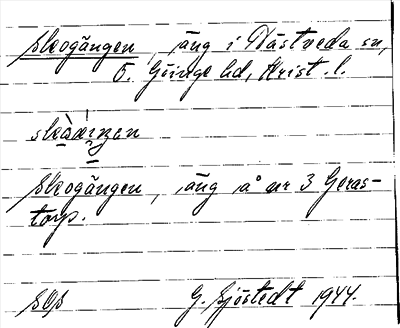 Skogängen, äng i Västveda sn,
Ö. Göinge hd, Krist. l.
Skogängen, äng å nr 3 Geras-
torp.
G. Sjöstedt 1944.